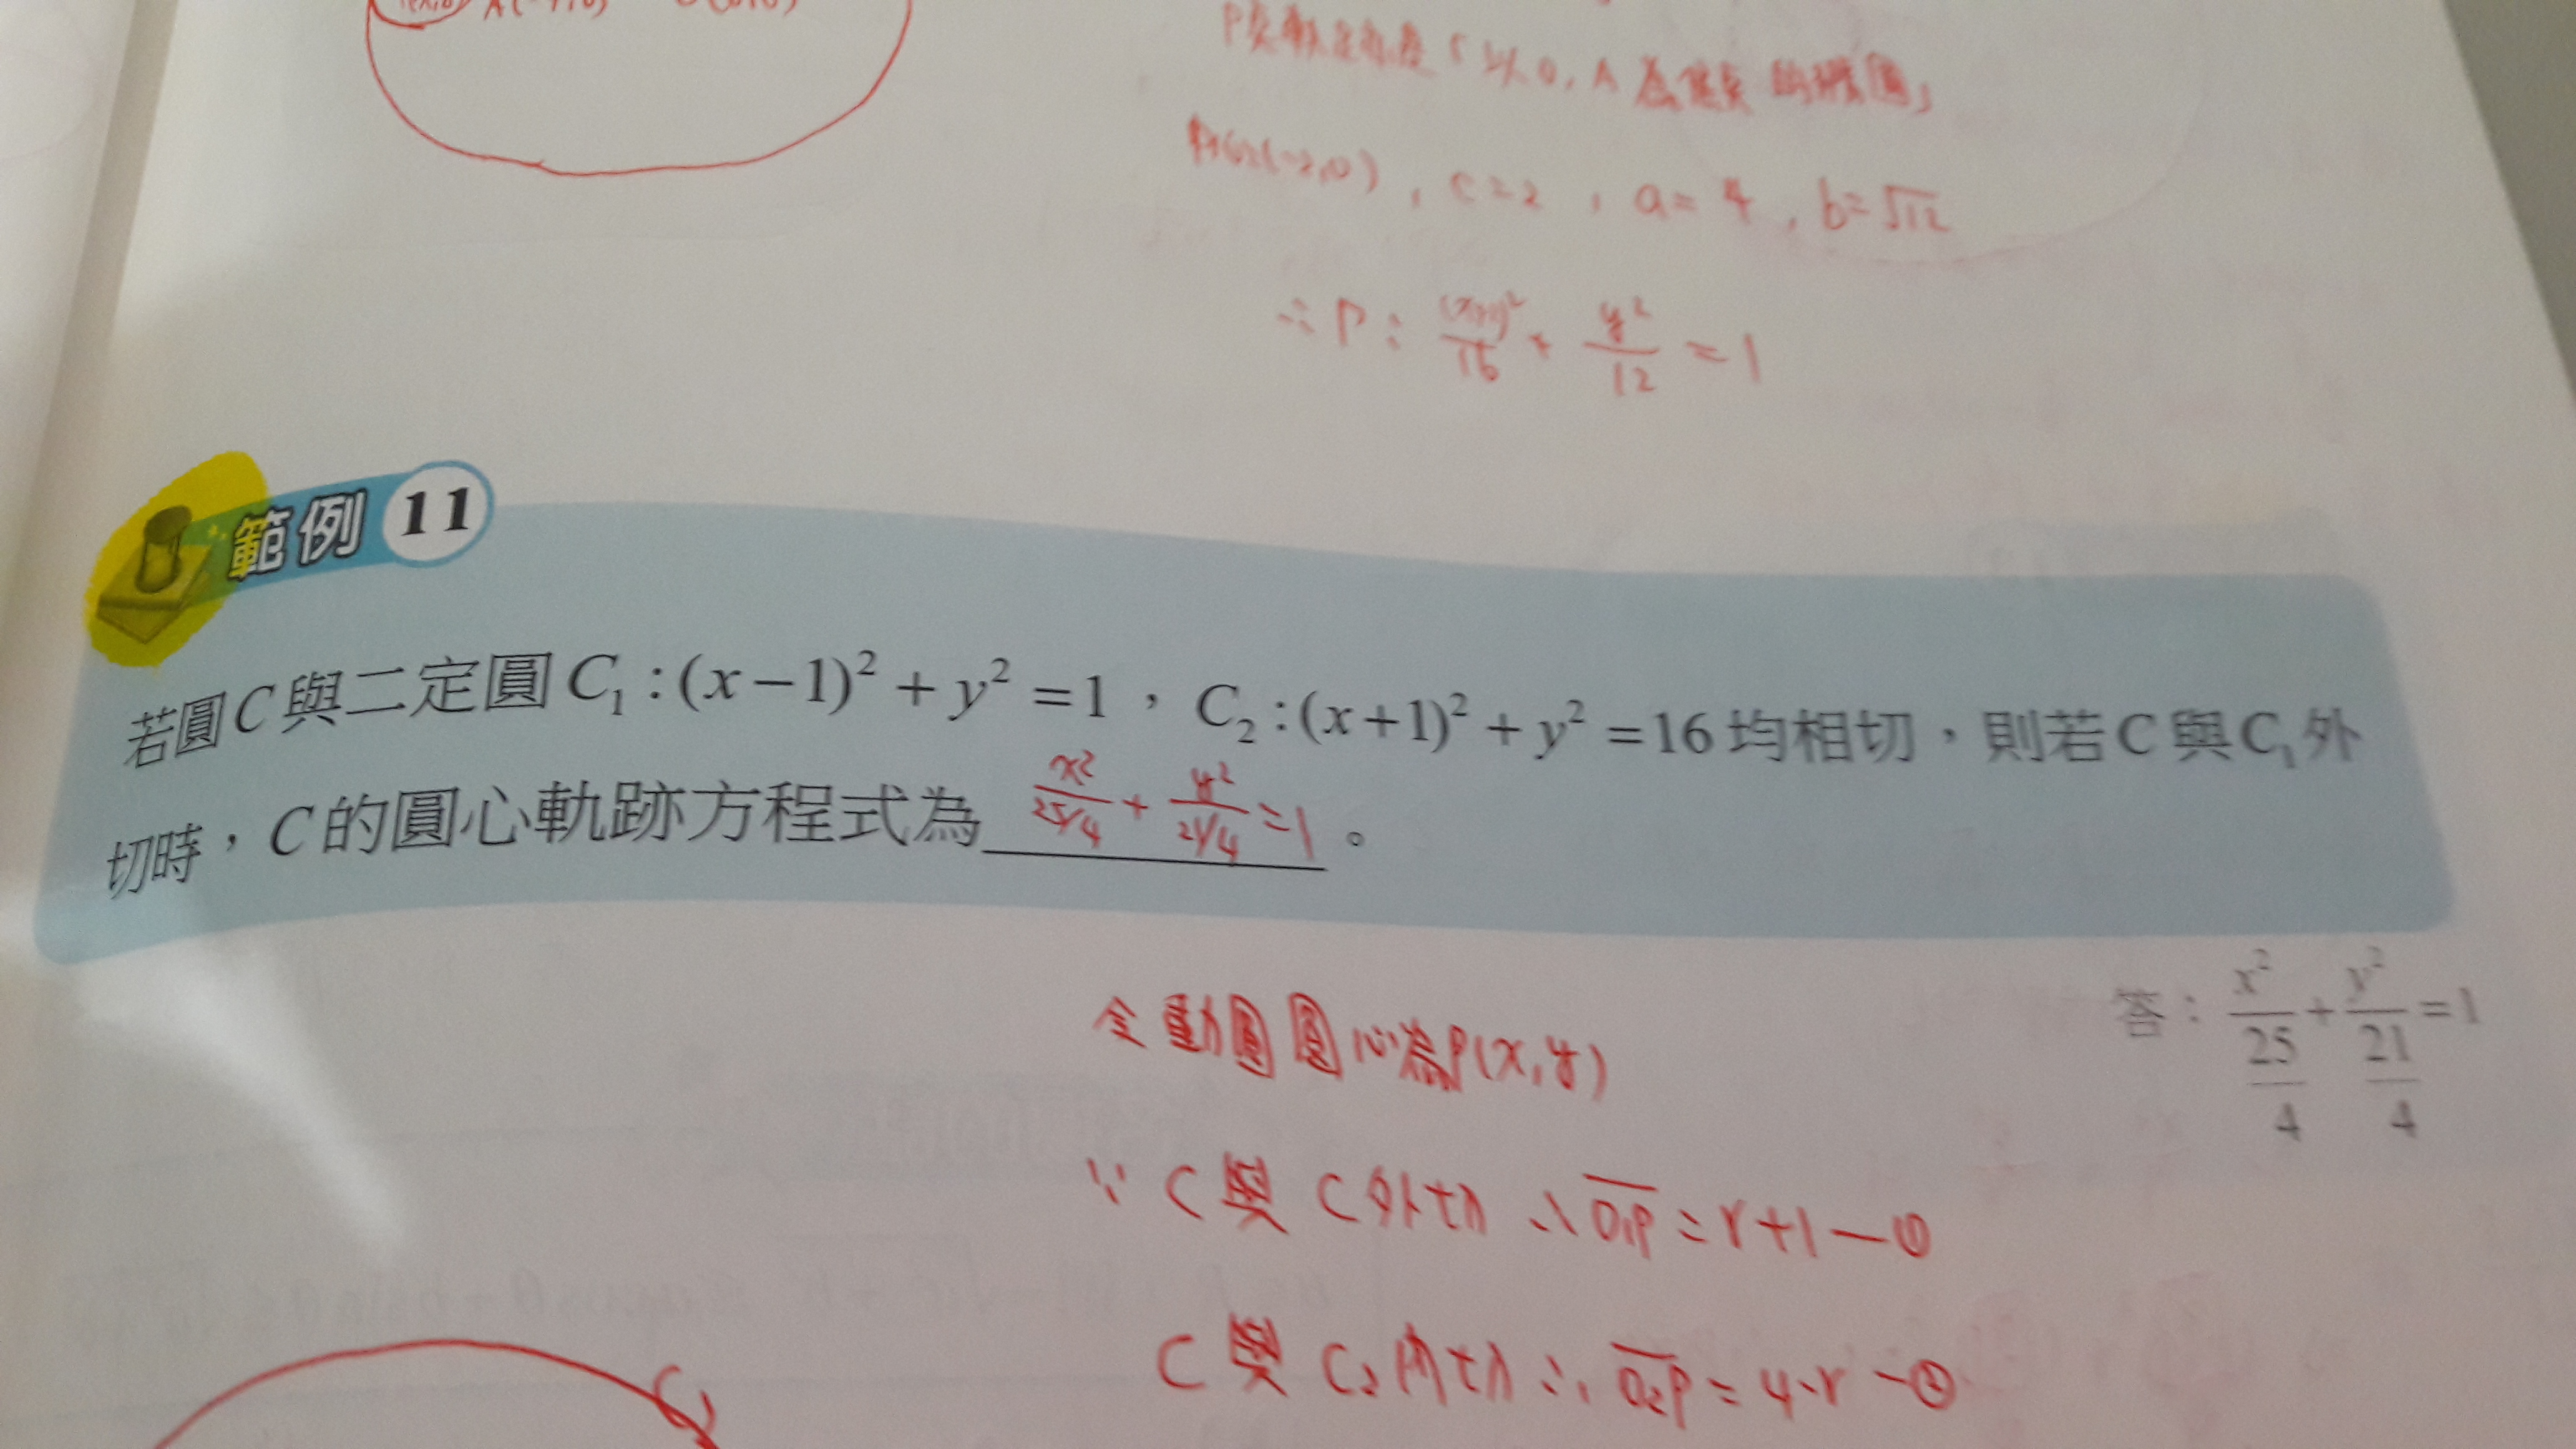 P點軌跡為「以O,A為焦點的橢圓」
(-2,0), c=2, a=4, b=√12
∴P: (x+2)²/16 + y²/12 = 1
範例 11
若圓C與二定圓C₁:(x-1)²+y²=1,C₂:(x+1)²+y²=16均相切,則若C與C₁外
切時,C的圓心軌跡方程式為 x²/25/4 + y²/21/4 = 1 。
答: x²/(25/4) + y²/(21/4) = 1
令動圓圓心為P(x,y)
∵ C與C外切 ∴O₁P=r+1—①
C與C₂內切∴O₂P=4-r—②
C₂